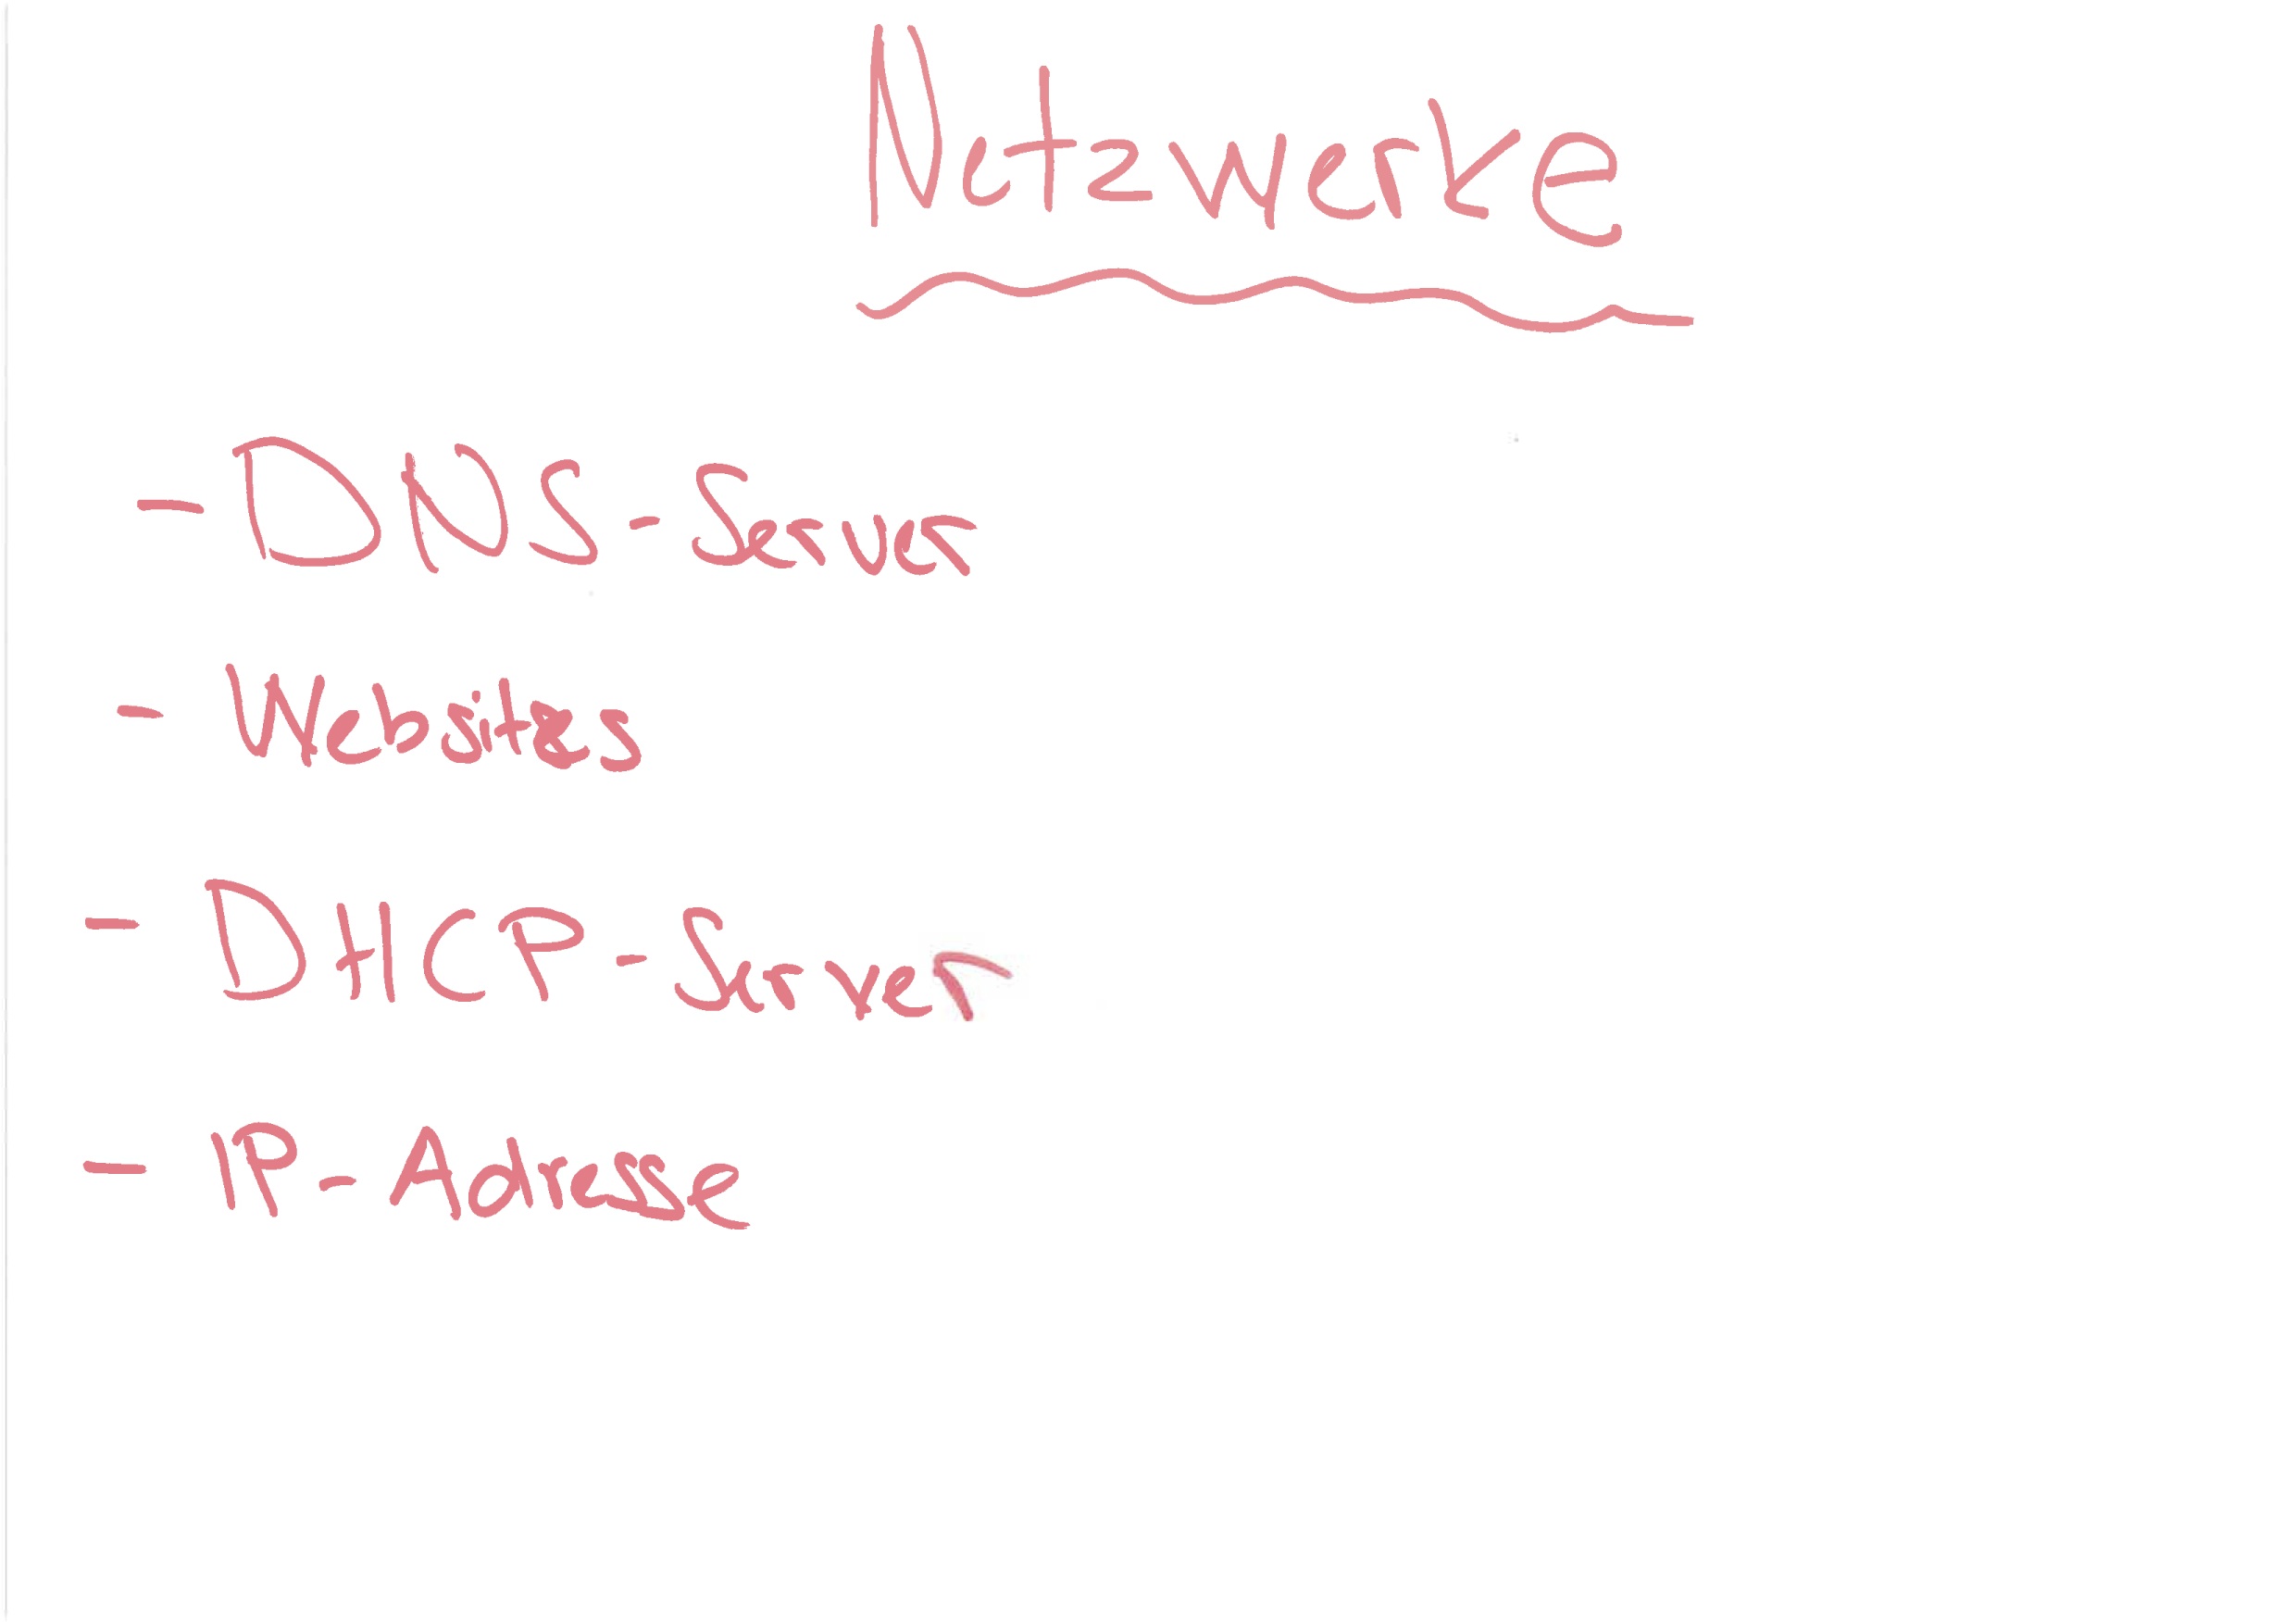 Netzwerke
- DNS-Server
- Websites
- DHCP-Server
- IP-Adresse